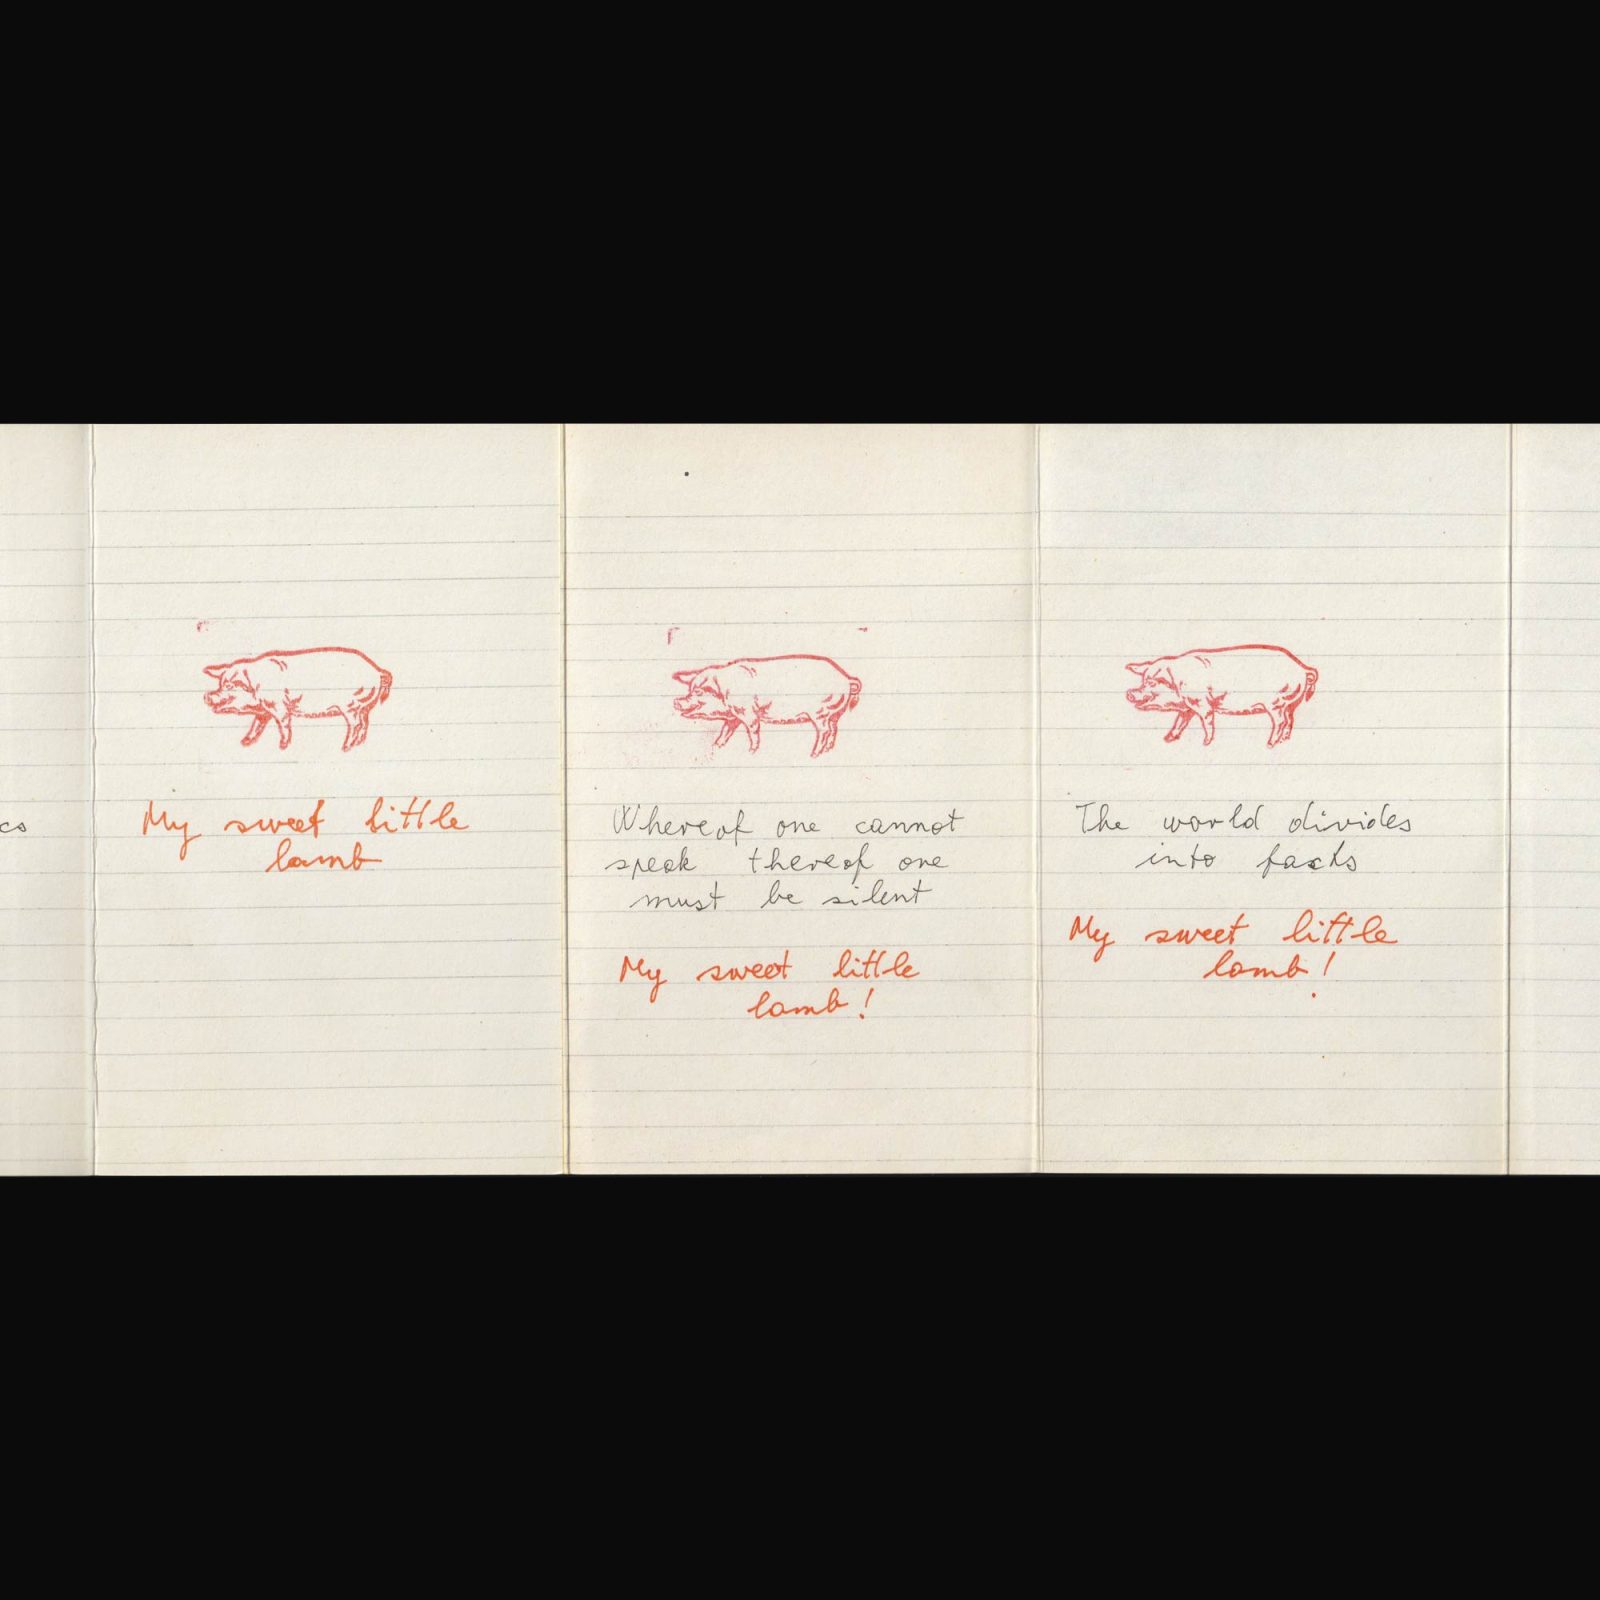 cs
My sweet little
lamb
Whereof one cannot
speak thereof one
must be silent
My sweet little
lamb!
The world divides
into facts
My sweet little
lamb!